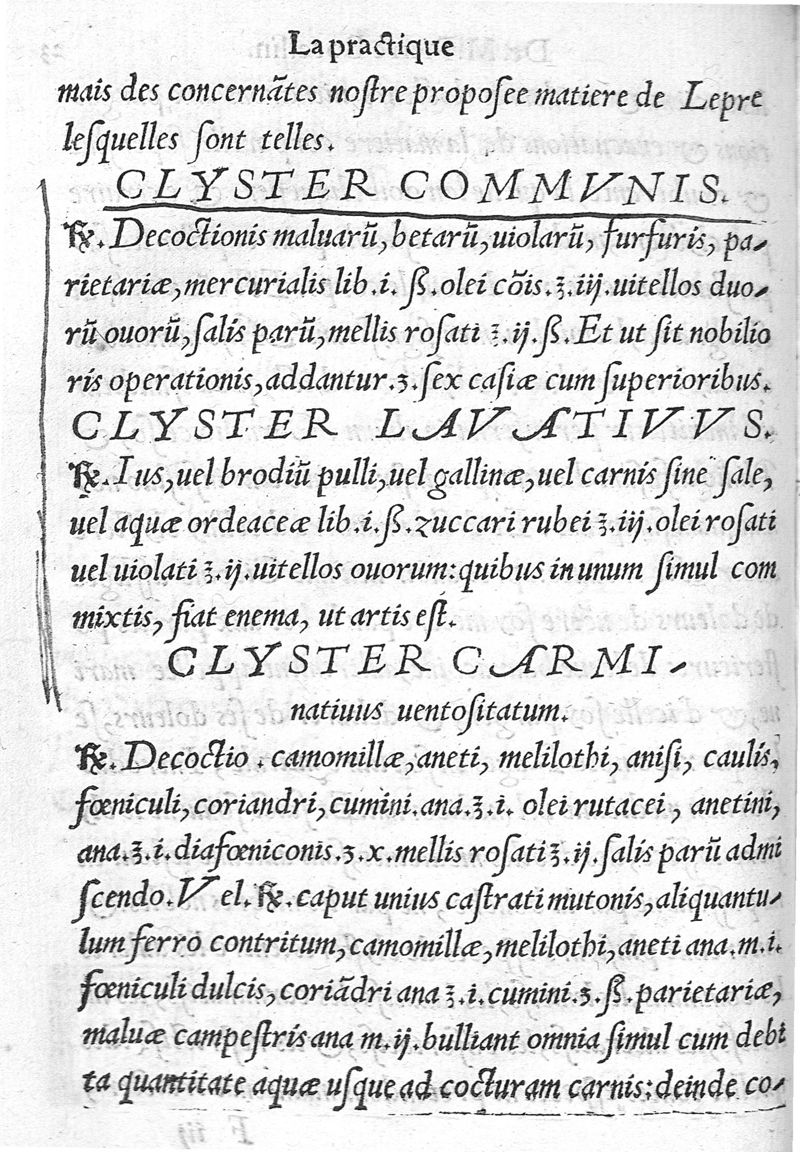 La practique
mais des concernãtes nostre proposee matiere de Lepre
lesquelles sont telles.
CLYSTER COMMVNIS.
℞. Decoctionis maluarũ, betarũ, uiolarũ, furfuris, pa-
rietariæ, mercurialis lib. i. ß. olei cõis. ℥. iij. uitellos duo-
rũ ouorũ, salis parũ, mellis rosati ℥. ij. ß. Et ut sit nobilio
ris operationis, addantur. ʒ. sex casiæ cum superioribus.
CLYSTER LAVATIVVS.
℞. Ius, uel brodiũ pulli, uel gallinæ, uel carnis sine sale,
uel aquæ ordeaceæ lib. i. ß. zuccari rubei ℥. iij. olei rosati
uel uiolati ℥. ij. uitellos ouorum: quibus in unum simul com
mixtis, fiat enema, ut artis est.
CLYSTER CARMI-
natiuus uentositatum.
℞. Decoctio. camomillæ, aneti, melilothi, anisi, caulis,
fœniculi, coriandri, cumini. ana. ℥. i. olei rutacei, anetini,
ana. ℥. i. diafœniconis. ʒ. x. mellis rosati ℥. ij. salis parũ admi
scendo. Vel. ℞. caput unius castrati mutonis, aliquantu-
lum ferro contritum, camomillæ, melilothi, aneti ana. m. i.
fœniculi dulcis, coriãdri ana ℥. i. cumini. ʒ. ß. parietariæ,
maluæ campestris ana m. ij. bulliant omnia simul cum debi
ta quantitate aquæ usque ad cocturam carnis: deinde co-